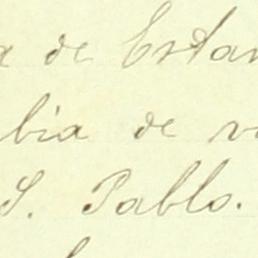 a de Estan
bia de v
S. Pablo.